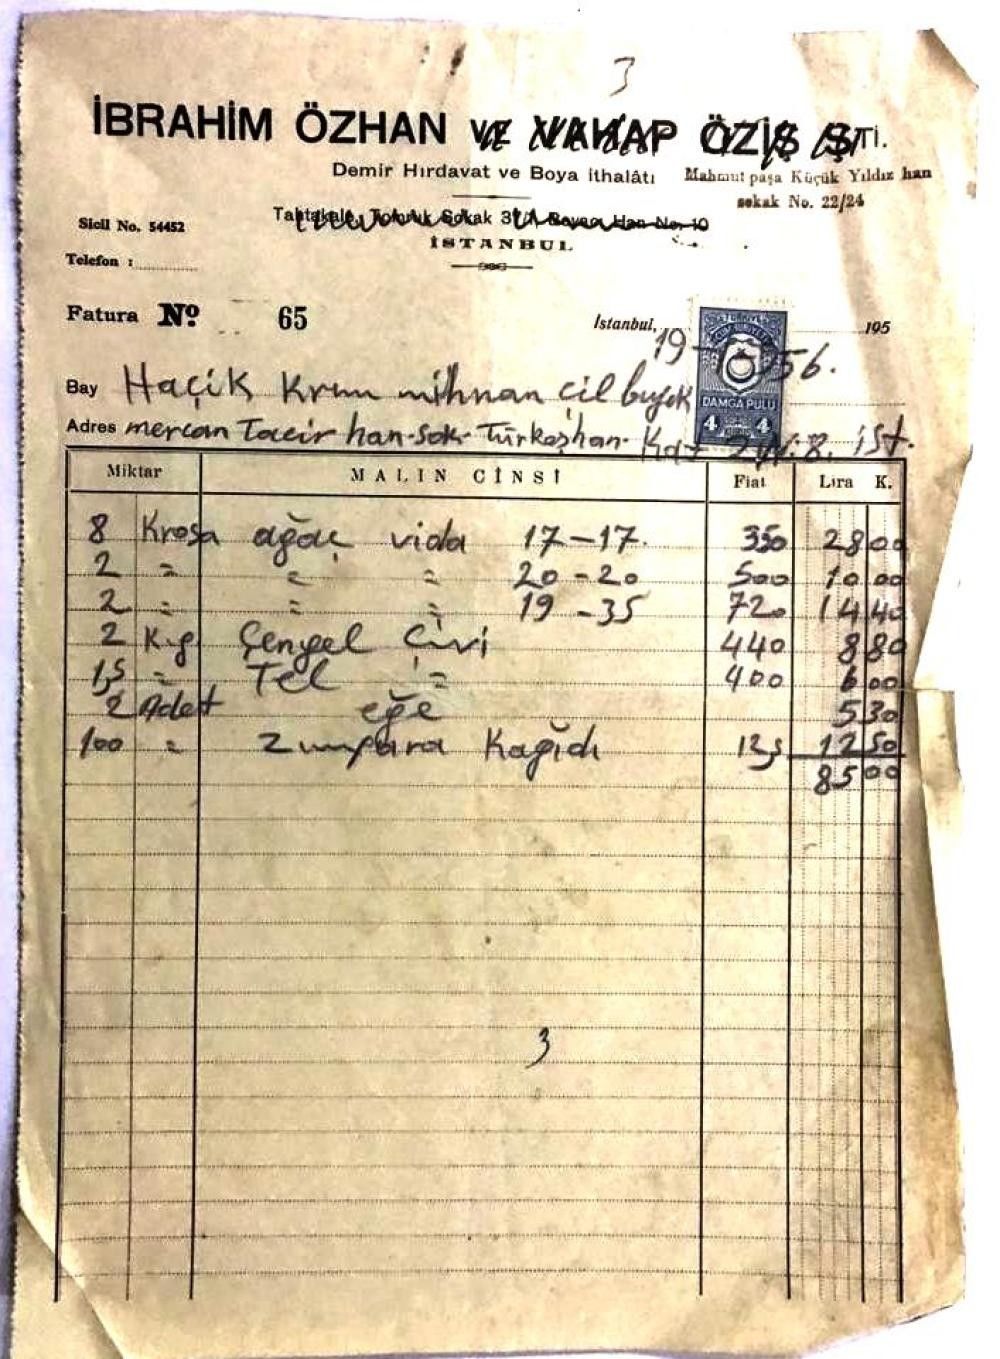 3
İBRAHİM ÖZHAN VE VAHAP ÖZİŞ ŞTİ.
Demir Hırdavat ve Boya İthalâtı
Mahmut paşa Küçük Yıldız han
sokak No. 22/24
Sicil No. 54452
Tahtakale, Tomruk Sokak Han No. 10
İSTANBUL
Telefon :
Fatura No 65
İstanbul, 19 - 956. 195
DAMGA PULU
4 4
Bay Haçik
Adres mercan Tacir han-sok. Türkoşhan. Kat 2 N. 8. ist.
Miktar MALIN CİNSİ Fiat Lira K.
8 Krosa ağaç vida 17-17. 350 28 00
2 " " " 20-20 500 10 00
2 " " " 19-35 720 14 40
2 Kg. Çengel Çivi 440 8 80
1,5 " Tel " 400 6 00
2 Adet eğe 5 30
100 " Zımpara Kağıdı 12,5 12 50
85 00
3